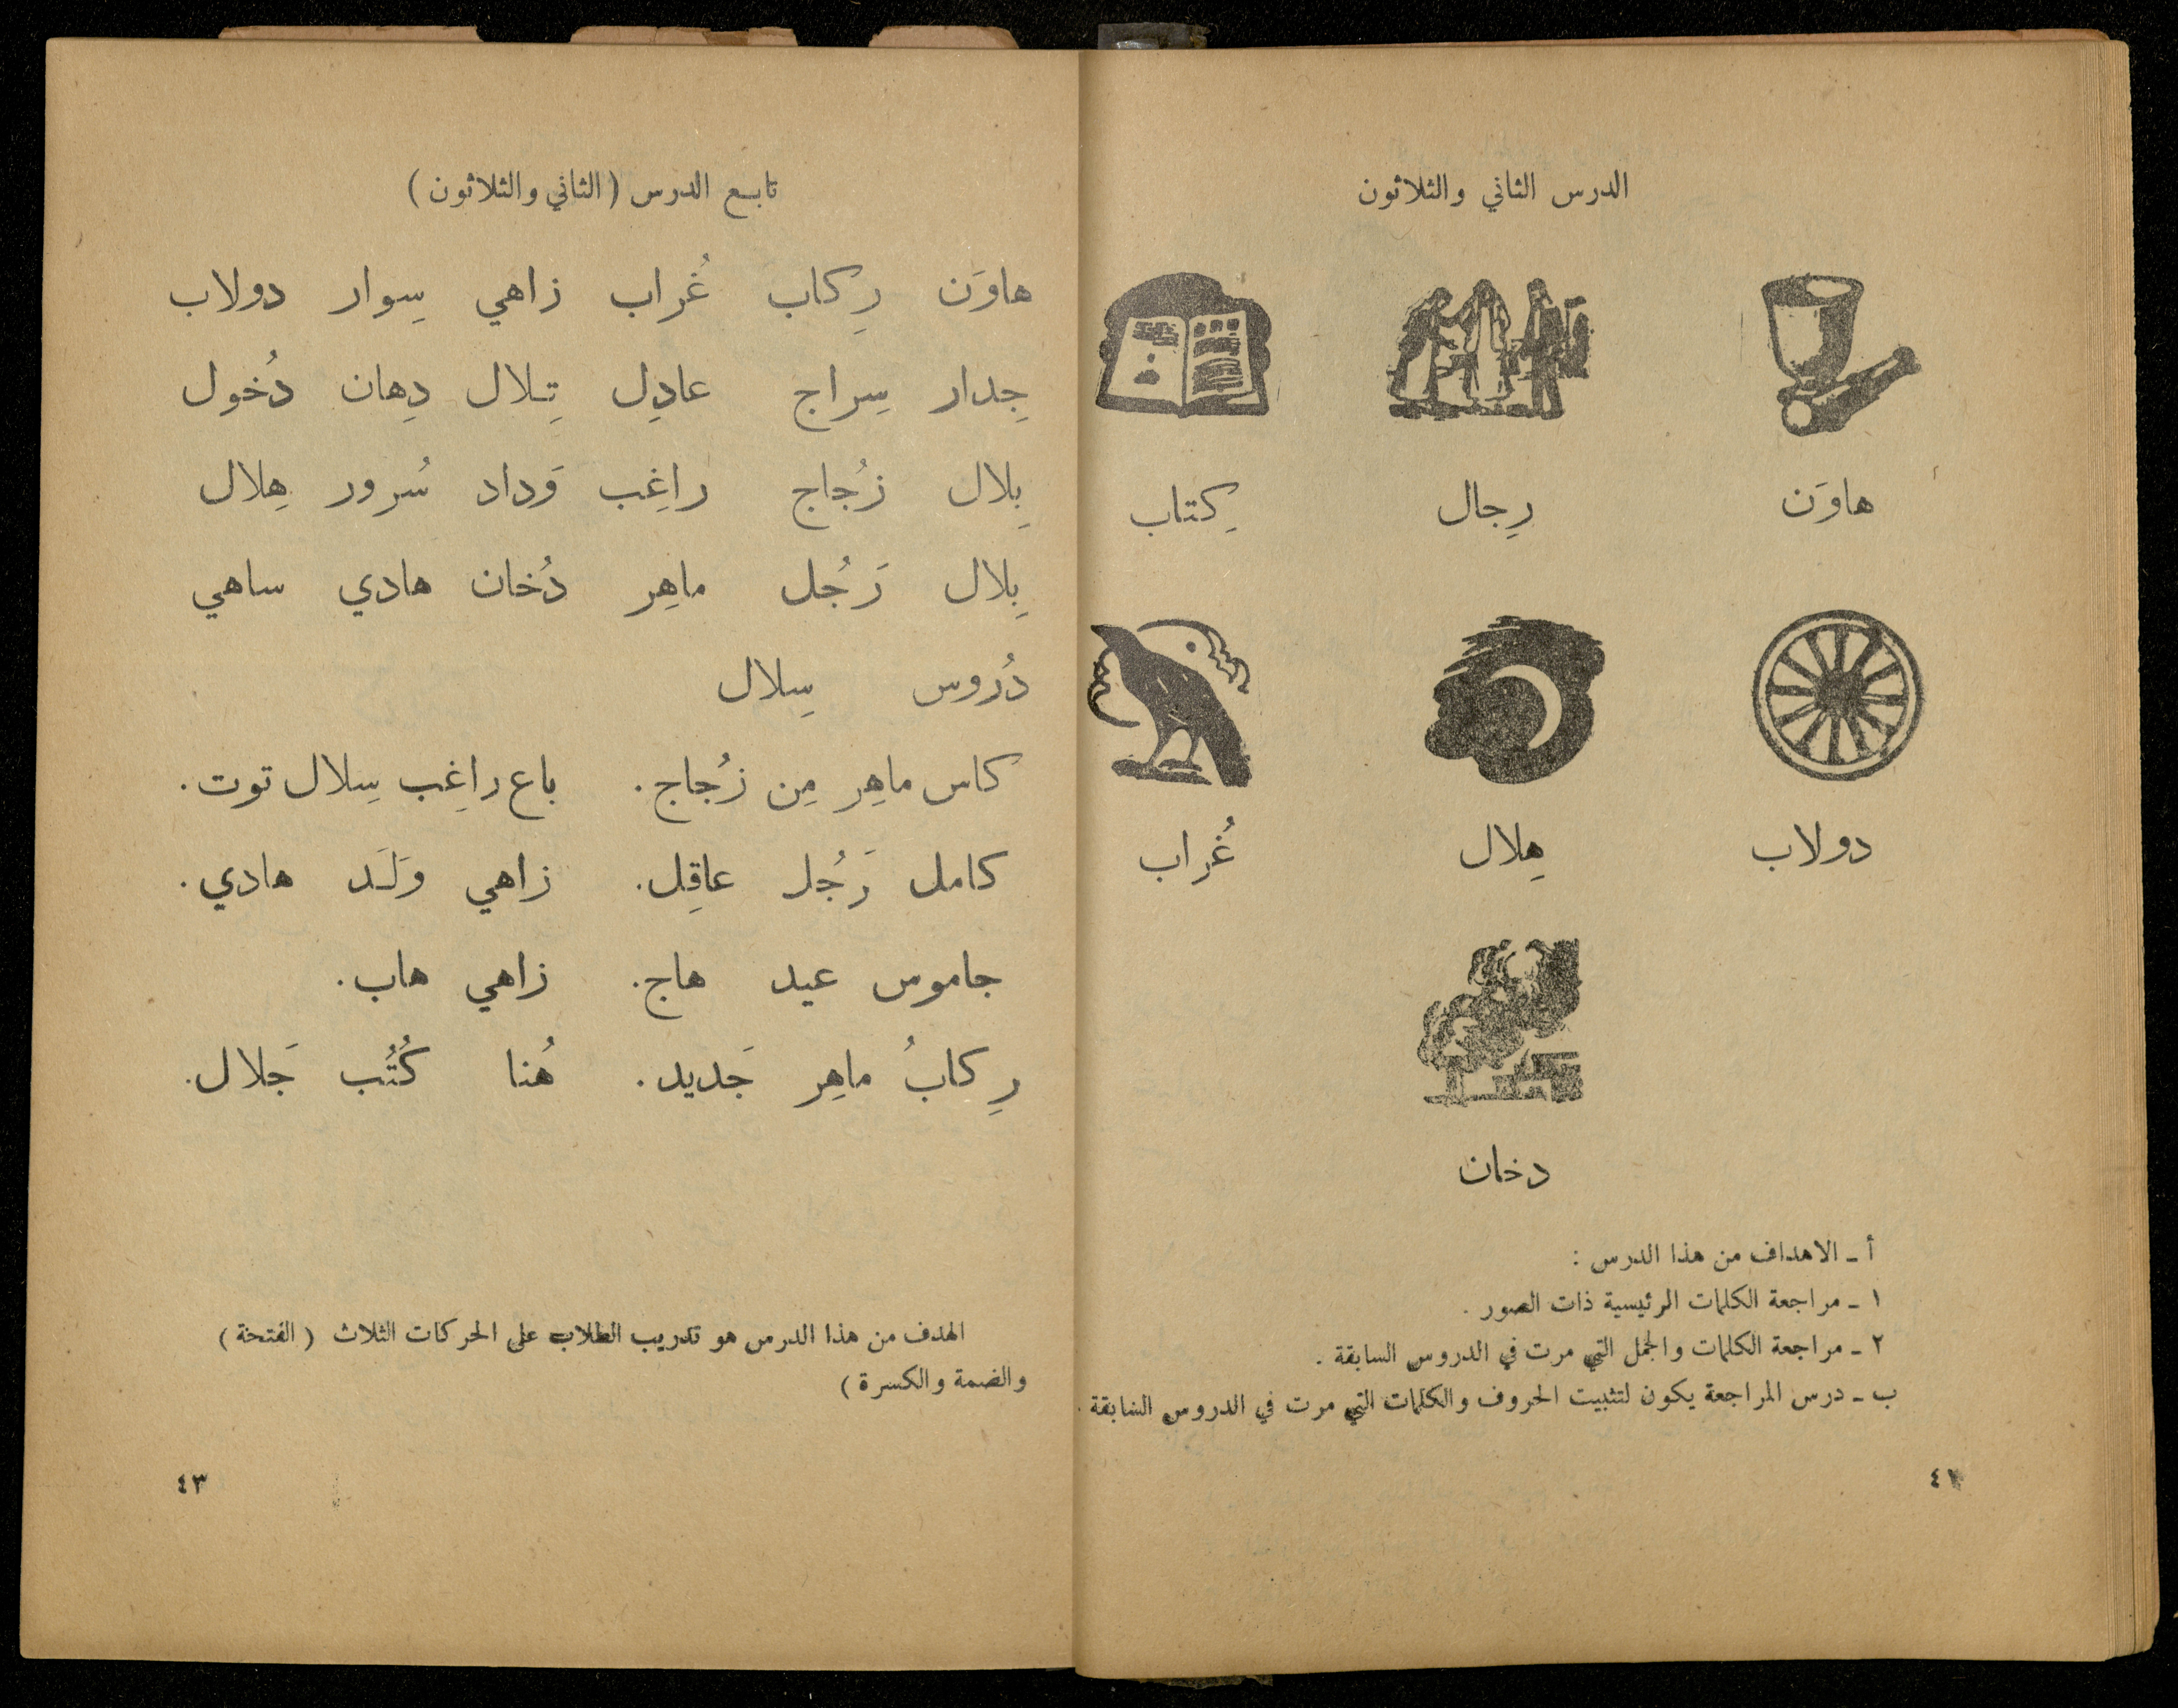 الدرس الثاني والثلاثون
هاوَن رِجال كِتاب
دولاب هِلال غُراب
دخان
أ ـ الاهداف من هذا الدرس :
١ ـ مراجعة الكلمات الرئيسية ذات الصور .
٢ ـ مراجعة الكلمات والجمل التي مرت في الدروس السابقة .
ب ـ درس المراجعة يكون لتثبيت الحروف والكلمات التي مرت في الدروس السابقة .
٤٢
تابع الدرس ( الثاني والثلاثون )
هاوَن رِكاب غُراب زاهي سِوار دولاب
جِدار سِراج عادِل تِلال دِهان دُخول
بِلال زُجاج راغِب وَداد سُرور هِلال
بِلال رَجُل ماهِر دُخان هادي ساهي
دُروس سِلال
كاس ماهِر مِن زُجاج . باع راغِب سِلال توت .
كامل رَجُل عاقِل . زاهي وَلَد هادي .
جاموس عيد هاج . زاهي هاب .
رِكابُ ماهِر جَديد . هُنا كُتُب جَلال .
الهدف من هذا الدرس هو تدريب الطلاب على الحركات الثلاث ( الفتحة )
والضمة والكسرة )
٤٣